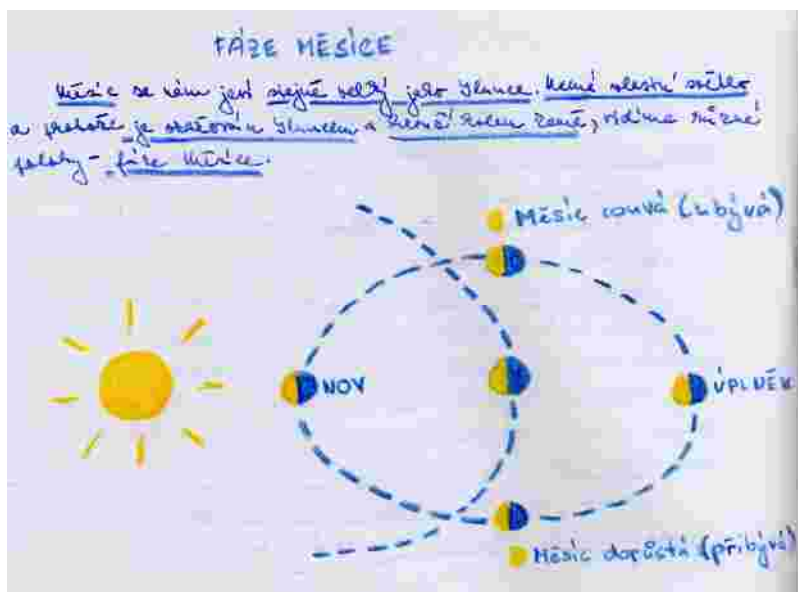 FÁZE MĚSÍCE
Měsíc se nám jeví stejně velký jako Slunce. Nemá vlastní světlo
a protože je osvětlován Sluncem a kolem Země, vidíme různé
polohy - fáze Měsíce.
Měsíc couvá (ubývá)
NOV
ÚPLNĚK
Měsíc dorůstá (přibývá)